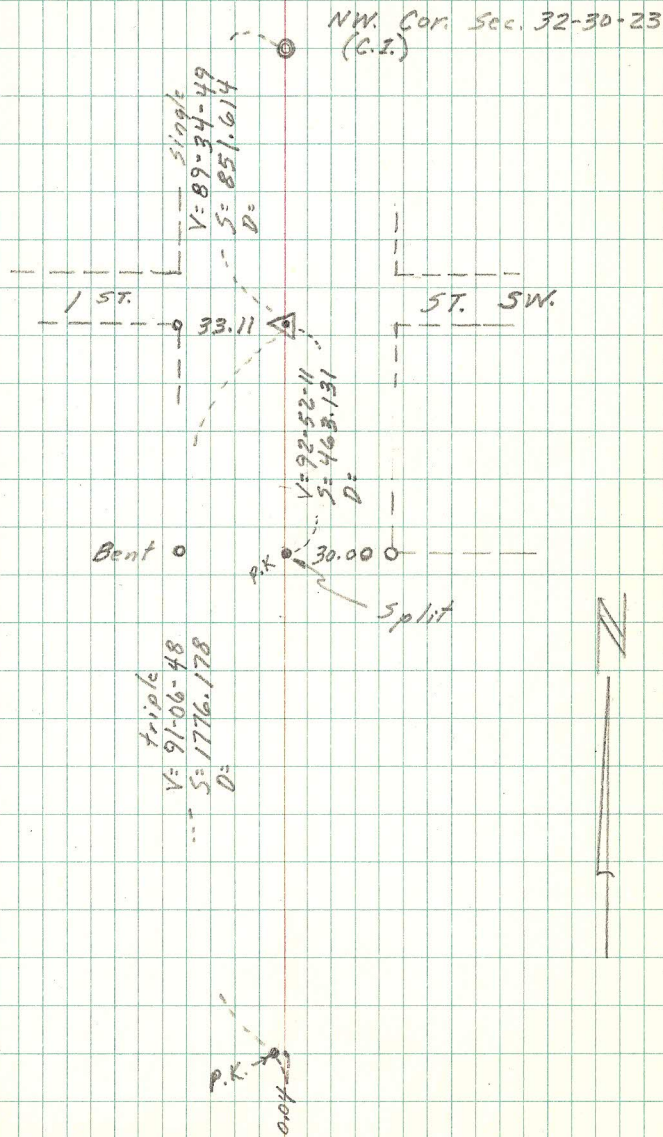 NW. Cor. Sec. 32-30-23
(C.I.)
single
V= 89-34-49
S= 851.614
D=
1 ST.
ST. SW.
33.11
V= 92-52-11
S= 463.131
D=
Bent
P.K
30.00
Split
N
triple
V= 91-06-48
S= 1776.178
D=
P.K.
0.04